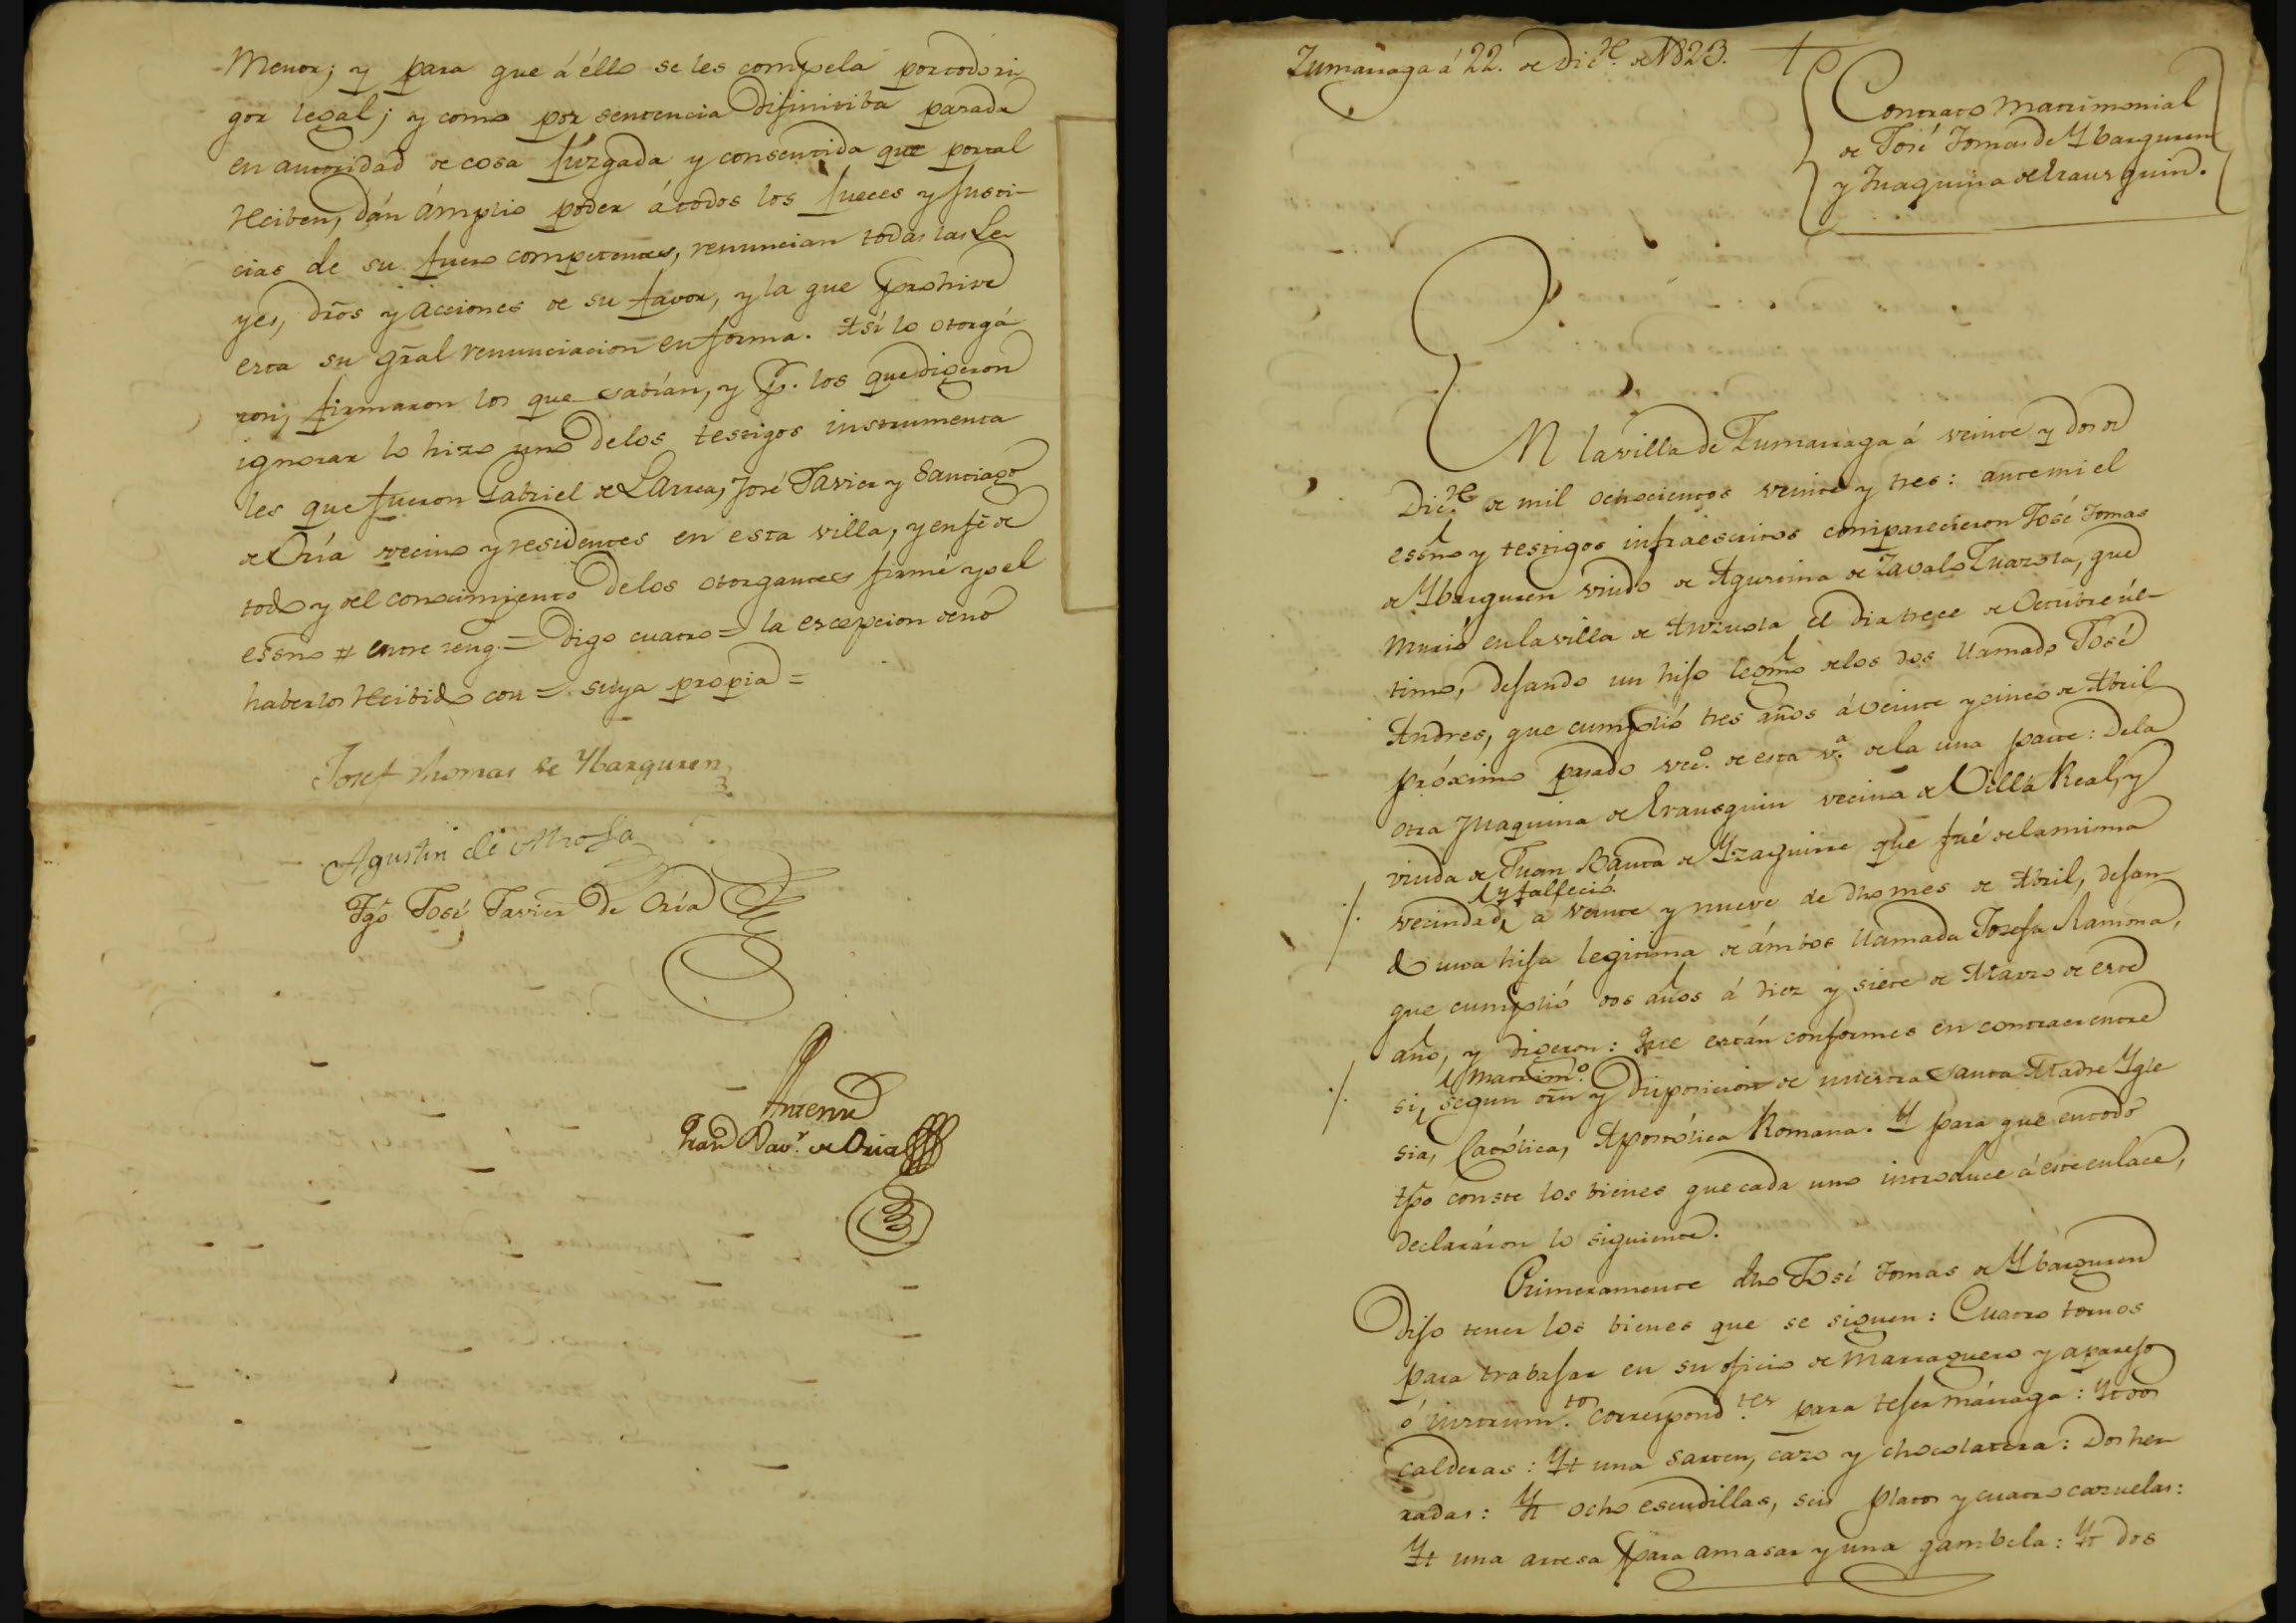 Menor; y para que á éllo se les compela por todo ri
gor legal; y como por sentencia difinitiba parada
en autoridad de cosa juzgada y consentida que por tal
reciben, dán ámplio poder á todos los jueces y justi-
cias de su fuero competentes, renuncian todas las Le-
yes, dros y acciones de su favor, y la que prohive
esta su gral renunciacion en forma. Así lo otorgá
ron, firmaron los que sabían, y p.r los que digeron
ignorar lo hizo uno de los testigos instrumenta
les que fueron Gabriel de Larrea, José Javier y Santiago
de Oría vecino y residentes en esta villa, y en fé de
todo y del conocimiento de los otorgantes firmé yo el
essno # entre reng.= digo cuatro = la excepcion de no
haberlos recibido con = suya propia =
Josef Thomas de Ybarguren
Agustin de
Tgō José Javier de Oría
Antemi
Juan Bau.r de Oria
Zumarraga á 22. de Dic.re de 1823.
Contrato Matrimonial
de José Tomas de Ybarguren
y Juaquina de Erausquin.
En la villa de Zumarraga á veinte y dos de
Dic.re de mil ochocientos veinte y tres: ante mi el
essno y testigos infraescritos comparecieron José Tomas
de Ybarguren viudo de Agustina de Zavalo Zuazola, que
murió en la villa de Anzuola el dia trece de Octubre úl-
timo, dejando un hijo legmo de los dos llamado José
Andres, que cumplió tres años á veinte y cinco de Abril
próximo pasado vec.o de esta v.a de la una parte: de la
otra Juaquina de Erausquin vecina de Villa Real, y
viuda de Juan Bauta de Yzaguirre que fué de la misma
y falleció.
vecindad, a veinte y nueve de dho mes de Abril, dejan-
do una hija legitima de ámbos llamada Josefa Ramona,
que cumplió dos años á diez y siete de Marzo de este
año, y digeron: Que están conformes en contraer entre
matrim.o
si, segun orn y disposicion de nuestra Santa Madre Ygle
sia, Católica, Apostólica Romana. Y para que en todo
tpo conste los bienes que cada uno introduce á este enlace,
declaráron lo siguiente.
Primeramente dho José Tomas de Ybarguren
dijo tener los bienes que se siguen: Cuatro tornos
para trabajar en su oficio de Marraguero y aparejo
ó instrum.tos correspond.tes para tejer márraga: Yt dos
calderas: Yt una sarten, cazo y chocolatera: Dos her
radas: Yt ocho escudillas, seis platos y cuatro cazuelas:
Yt una artesa para amasar y una gambela: Yt dos